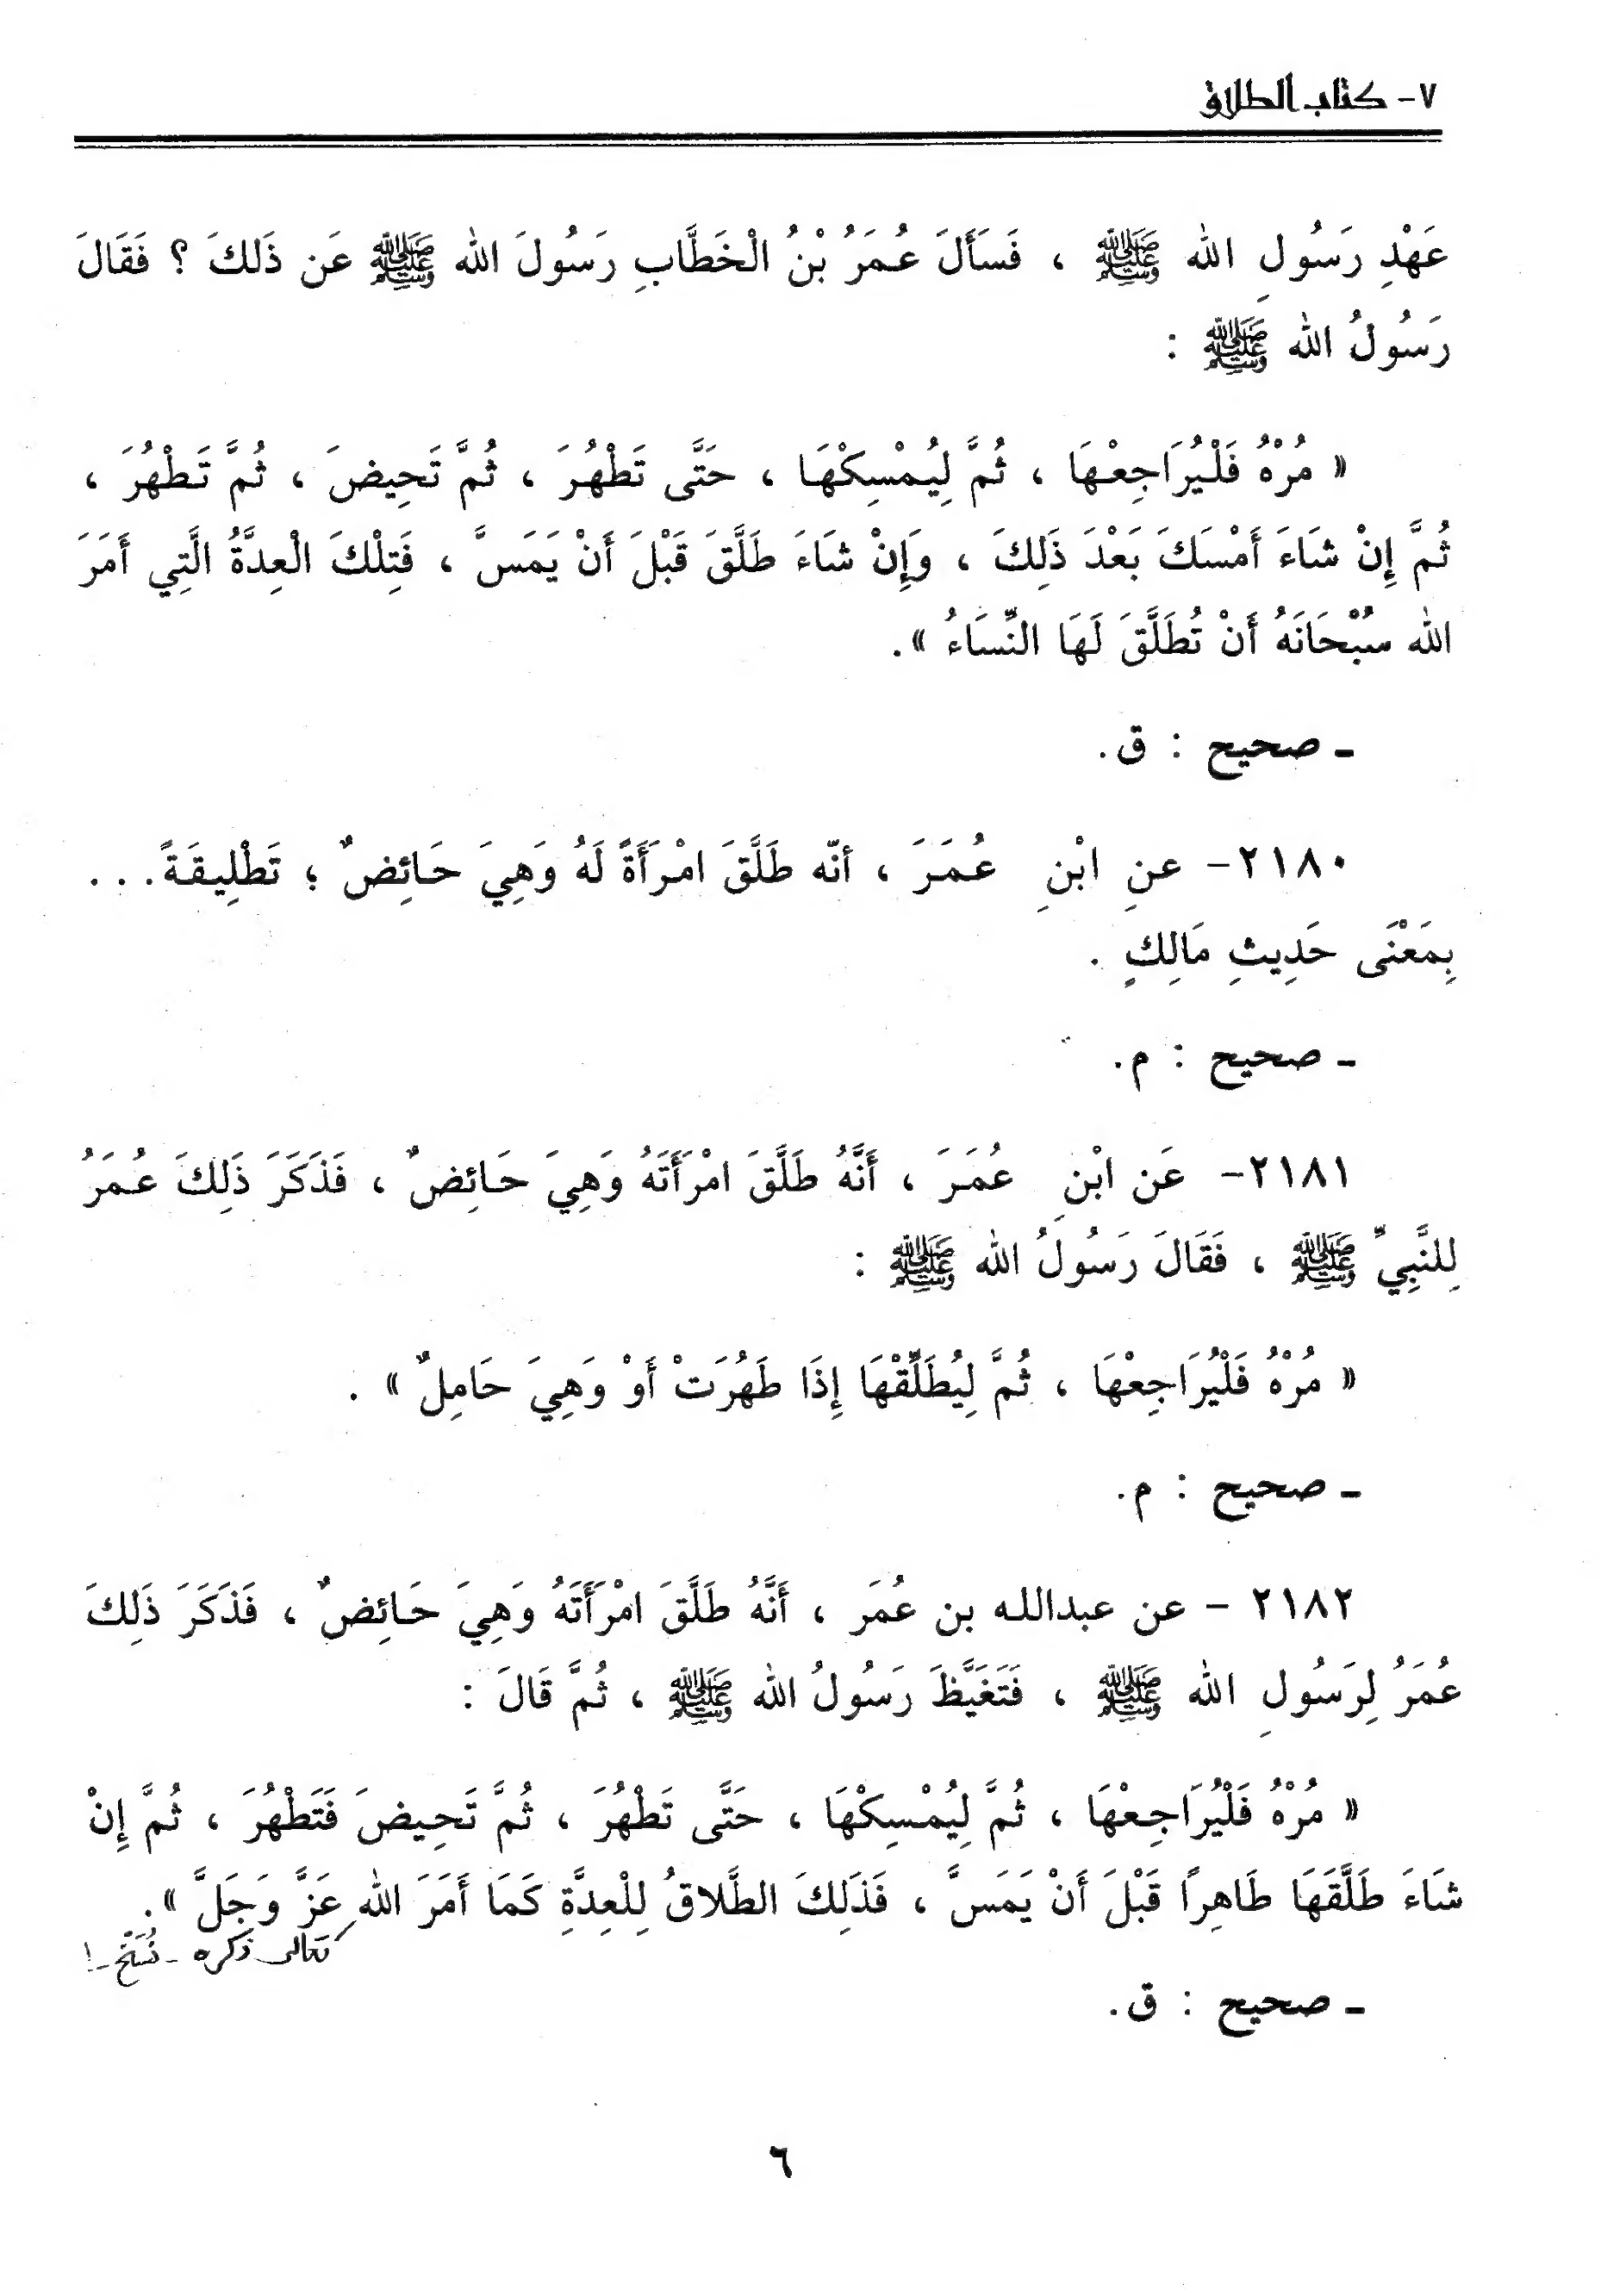 ٧- كتاب الطلاق
عَهْدِ رَسُولِ الله ﷺ ، فَسَأَلَ عُمَرُ بْنُ الْخَطَّابِ رَسُولَ الله ﷺ عَن ذَلكَ ؟ فَقَالَ
رَسُولُ الله ﷺ :
« مُرْهُ فَلْيُرَاجِعْهَا ، ثُمَّ لِيُمْسِكْهَا ، حَتَّى تَطْهُرَ ، ثُمَّ تَحِيضَ ، ثُمَّ تَطْهُرَ ،
ثُمَّ إِنْ شَاءَ أَمْسَكَ بَعْدَ ذَلِكَ ، وَإِنْ شَاءَ طَلَّقَ قَبْلَ أَنْ يَمَسَّ ، فَتِلْكَ الْعِدَّةُ الَّتِي أَمَرَ
الله سُبْحَانَهُ أَنْ تُطَلَّقَ لَهَا النِّسَاءُ ».
ـ صحيح : ق.
٢١٨٠- عنِ ابْنِ عُمَرَ ، أنّه طَلَّقَ امْرَأَةً لَهُ وَهِيَ حَائِضٌ ؛ تَطْلِيقَةً...
بِمَعْنَى حَدِيثِ مَالِكٍ .
ـ صحيح : م.
٢١٨١- عَن ابْنِ عُمَرَ ، أَنَّهُ طَلَّقَ امْرَأَتَهُ وَهِيَ حَائِضٌ ، فَذَكَرَ ذَلِكَ عُمَرُ
لِلنَّبِيِّ ﷺ ، فَقَالَ رَسُولُ الله ﷺ :
« مُرْهُ فَلْيُرَاجِعْهَا ، ثُمَّ لِيُطَلِّقْهَا إِذَا طَهُرَتْ أَوْ وَهِيَ حَامِلٌ » .
ـ صحيح : م.
٢١٨٢ - عن عبدالله بن عُمَر ، أَنَّهُ طَلَّقَ امْرَأَتَهُ وَهِيَ حَائِضٌ ، فَذَكَرَ ذَلِكَ
عُمَرُ لِرَسُولِ الله ﷺ ، فَتَغَيَّظَ رَسُولُ الله ﷺ ، ثُمَّ قَالَ :
« مُرْهُ فَلْيُرَاجِعْهَا ، ثُمَّ لِيُمْسِكْهَا ، حَتَّى تَطْهُرَ ، ثُمَّ تَحِيضَ فَتَطْهُرَ ، ثُمَّ إِنْ
شَاءَ طَلَّقَهَا طَاهِراً قَبْلَ أَنْ يَمَسَّ ، فَذَلِكَ الطَّلاقُ لِلْعِدَّةِ كَمَا أَمَرَ الله عَزَّ وَجَلَّ ».
تعالى ذكره - نُسَخ -!
ـ صحيح : ق.
٦